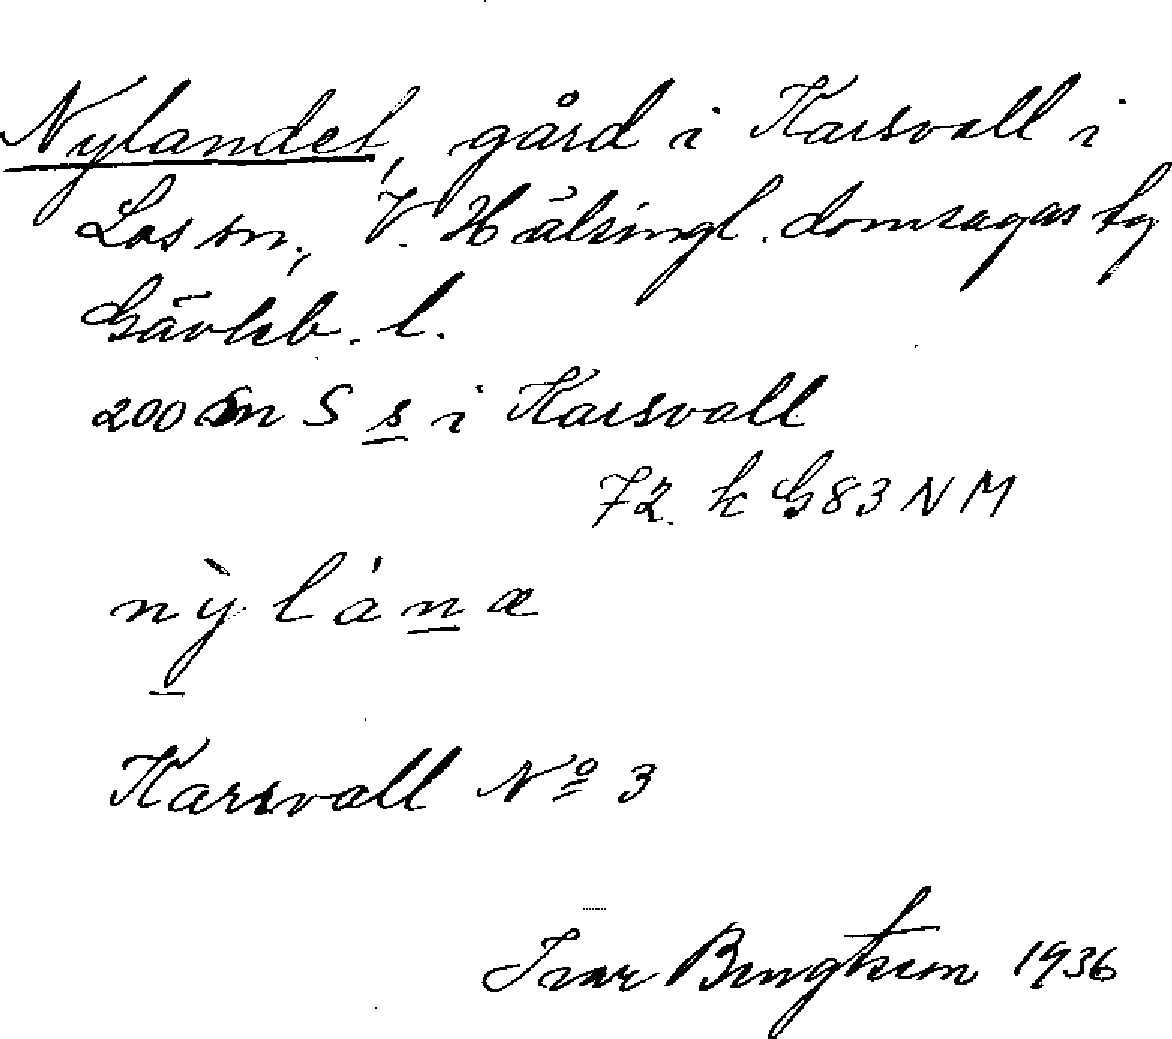 Nylandet, gård i Karsvall i
Los sn., V. Hälsingl. domsagas tg
Gävleb. l.
200 m S s i Karsvall
72. k G83NM
nỳ lánæ
Karsvall Nº 3
Ivar Bengtsson 1936